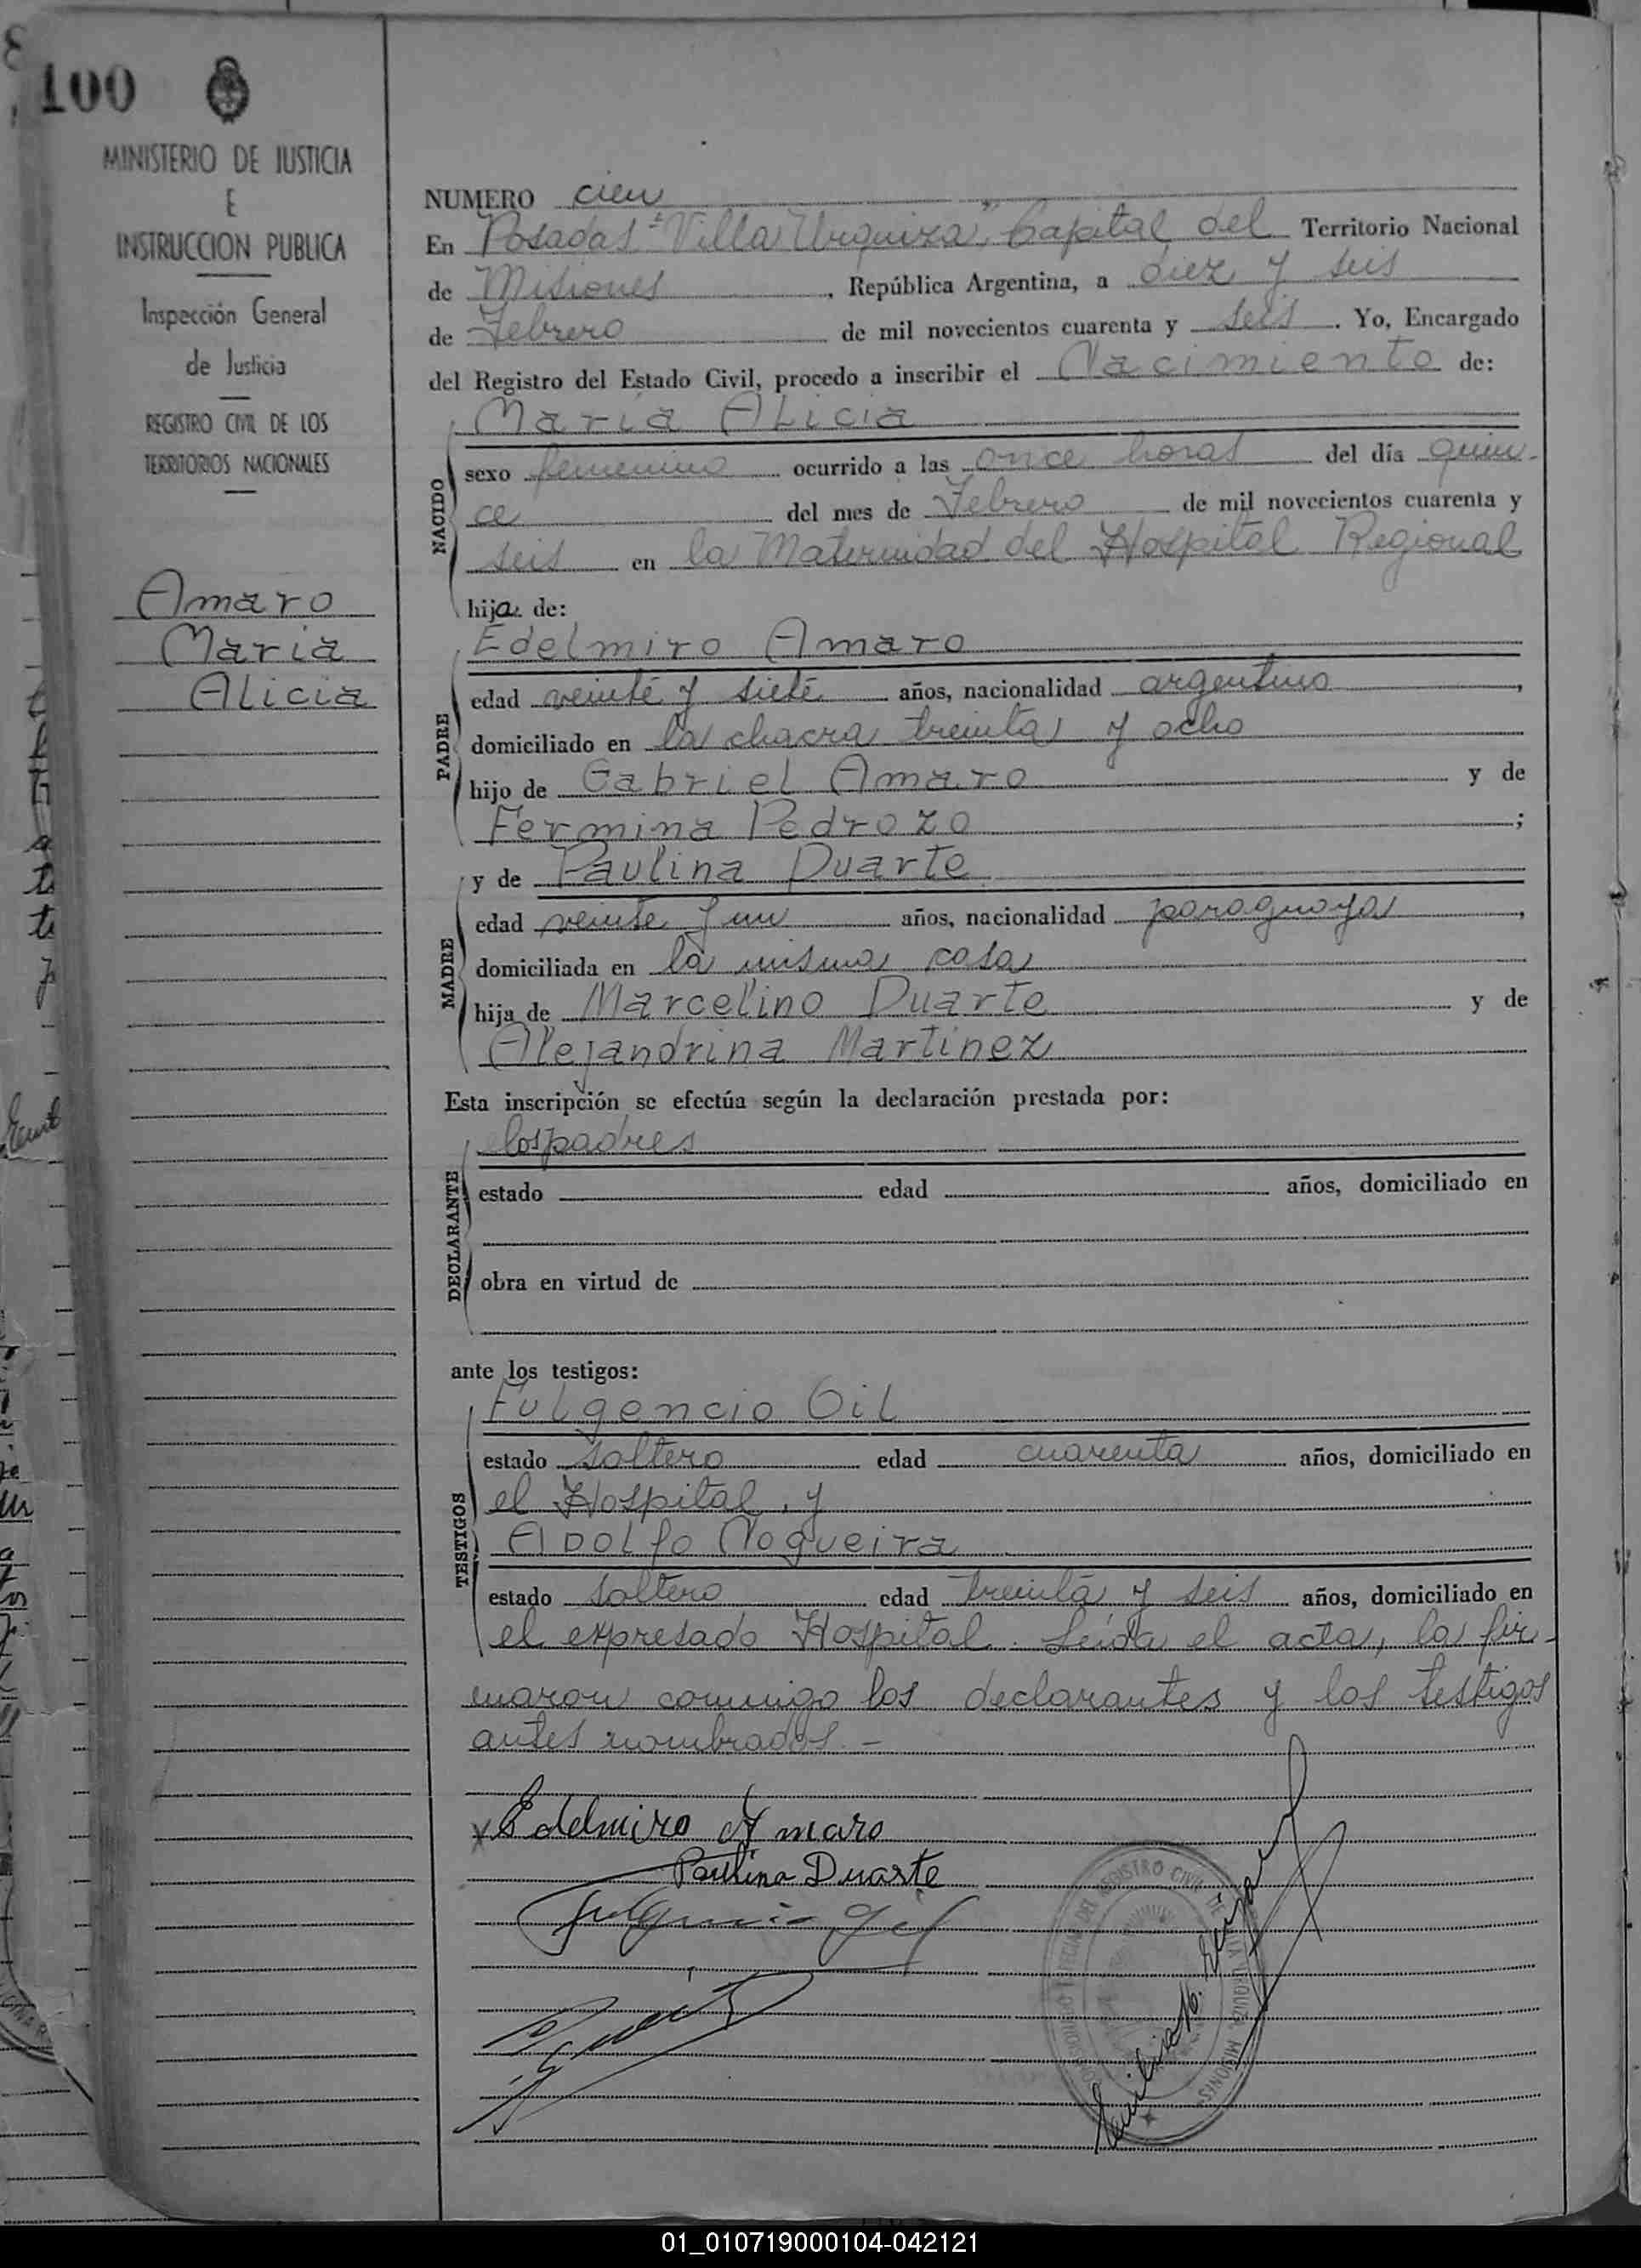 100
MINISTERIO DE JUSTICIA
E
INSTRUCCION PUBLICA
Inspección General
de Justicia
REGISTRO CIVIL DE LOS
TERRITORIOS NACIONALES
Amaro
Maria
Alicia
NUMERO cien
En Posadas "Villa Urquiza", Capital del Territorio Nacional
de Misiones, República Argentina, a diez y seis
de Febrero de mil novecientos cuarenta y seis. Yo, Encargado
del Registro del Estado Civil, procedo a inscribir el Nacimiento de:
Maria Alicia
NACIDO
sexo femenino ocurrido a las once horas del día quin-
ce del mes de Febrero de mil novecientos cuarenta y
seis en la Maternidad del Hospital Regional
hija de:
Edelmiro Amaro
PADRE
edad veinte y siete años, nacionalidad argentino,
domiciliado en la chacra treinta y ocho
hijo de Gabriel Amaro y de
Fermina Pedrozo;
y de Paulina Duarte
MADRE
edad veinte y un años, nacionalidad paraguaya,
domiciliada en la misma casa
hija de Marcelino Duarte y de
Alejandrina Martinez
Esta inscripción se efectúa según la declaración prestada por:
los padres
DECLARANTE
estado edad años, domiciliado en
obra en virtud de
ante los testigos:
Fulgencio Gil
TESTIGOS
estado soltero edad cuarenta años, domiciliado en
el Hospital, y
Adolfo Nogueira
estado soltero edad treinta y seis años, domiciliado en
el expresado Hospital. Leida el acta, la fir-
maron conmigo los declarantes y los testigos
antes nombrados.-
Edelmiro Amaro
Paulina Duarte
Fulgencio Gil
01_010719000104-042121